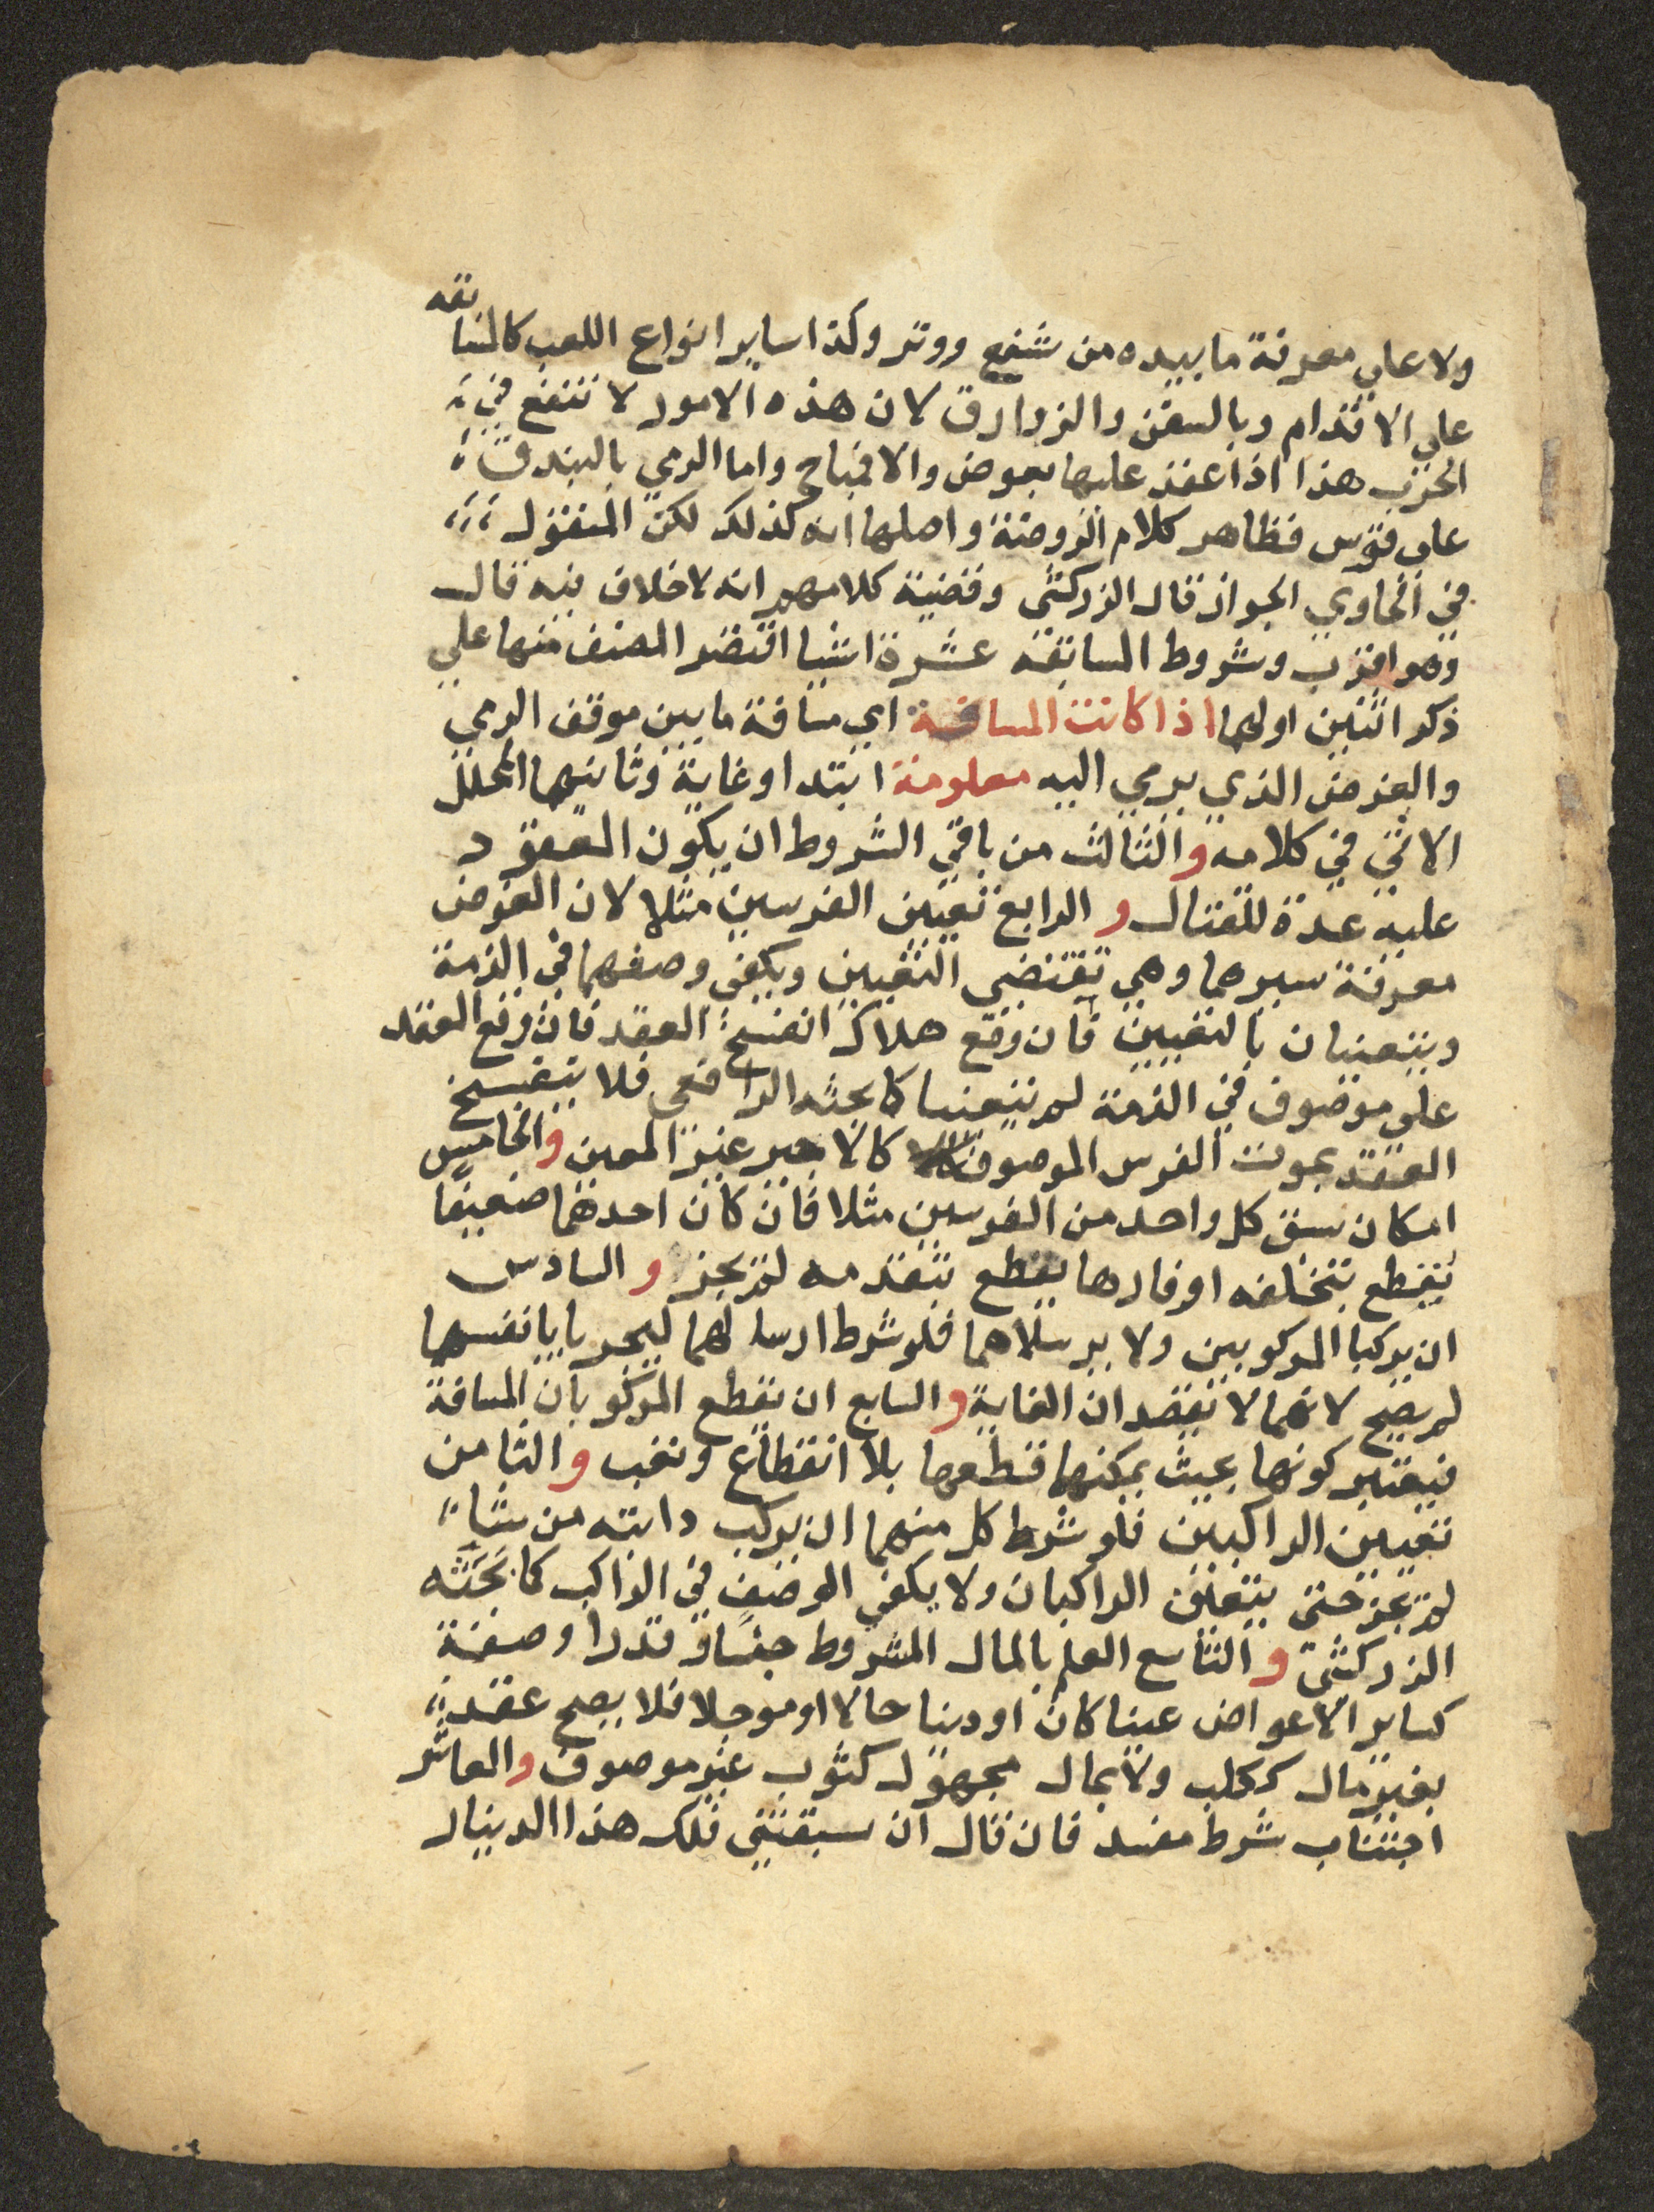 ولا علي معرفة ما بيده من شفع ووتر وكذا ساير انواع اللعب كالمسابقه
علي الاقدام وبالسفن والزوارق لان هذه الامور لا تنفع في
الحرب هذا اذا عقد عليها بعوض والا فمباح واما الرمي بالبندق
علي قوس فظاهر كلام الروضة واصلها انه كذلك لكن المنقول
في الحاوي الجواز قال الزركشي وقضية كلامهم انه لا خلاف فيه قال
وهو اقرب وشروط المسابقه عشرة اشيا اقتصر المصنف منها علي
ذكر اثنين اولهما اذا كانت المسافة اي مسافة ما بين موقف الرمي
والغرض الذي يرمي اليه معلومة ابتدا وغاية وثانيهما المحلل
الاتي في كلامه والثالث من باقي الشروط ان يكون المعقود
عليه عدة للقتال والرابع تعيين الفرسين مثلا لان الغرض
معرفة سيرهما وهي تقتضي التعيين ويكفي وصفهما في الذمة
ويتعينان بالتعيين فان وقع هلاك انفسخ العقد فان وقع العقد
على موصوف في الذمة لم يتعينا كما بحثه الرافعي فلا ينفسخ
العقد بموت الفرس الموصوف كالاجير غير المعين والخامس
امكان سبق كل واحد من الفرسين مثلا فان كان احدهما ضعيفا
يقطع بتخلفه او فارها يقطع بتقدمه لم يجز والسادس
ان يركبا المركوبين ولا يرسلاهما فلو شرط ارسالهما ليجريا بانفسهما
لم يصح لانهما لا يقصدان الغاية والسابع ان يقطع المركوبان المسافة
فيعتبر كونهما بحيث يمكنهما قطعها بلا انقطاع وتعب والثامن
تعيين الراكبين فلو شرط كل منهما ان يركب دابته من شاء
لم يجز حتى يتعين الراكبان ولا يكفي الوصف في الراكب كما بحثه
الزركشي والتاسع العلم بالمال المشروط جنسا وقدرا وصفة
كساير الاعواض عينا كان او دينا حالا او موجلا فلا يصح عقد
بغير مال ككلب ولا بمال مجهول كثوب غير موصوف والعاشر
اجتناب شرط مفسد فان قال ان سبقتني فلك هذا الدينار